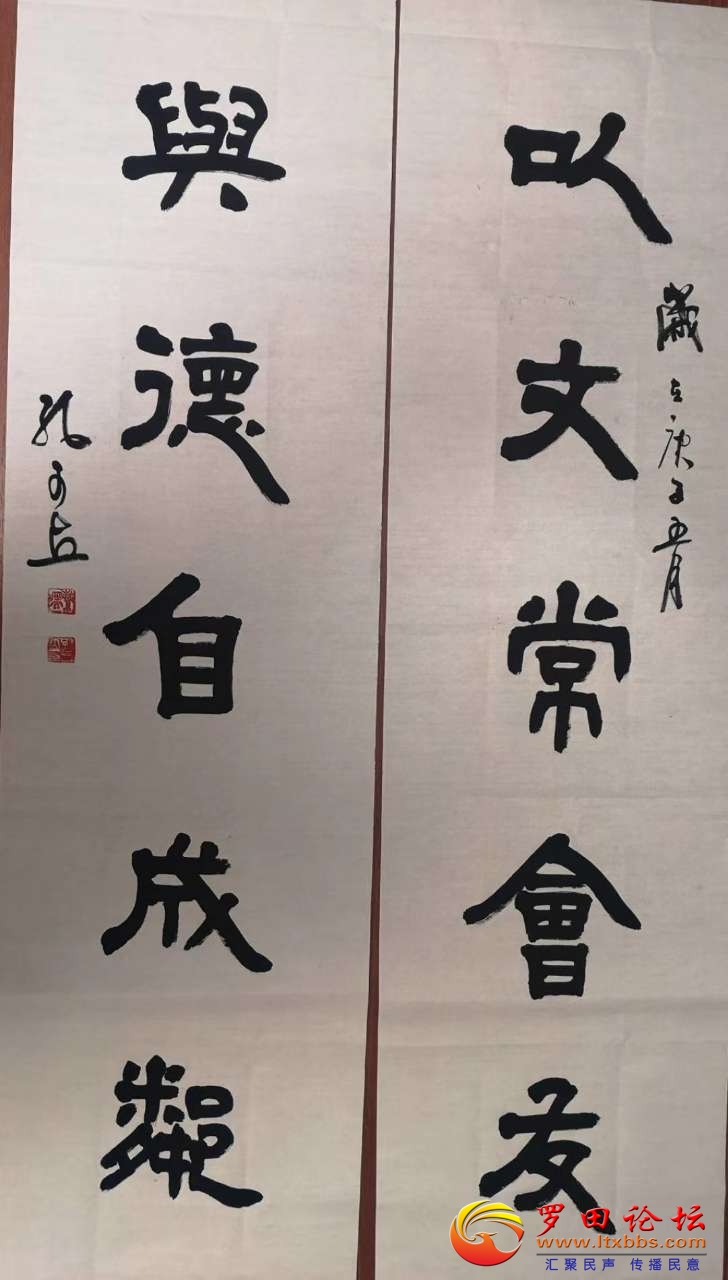 以文常會友
歲在庚子五月
與德自成鄰
罗田论坛
www.ltxbbs.com
汇聚民声 传播民意